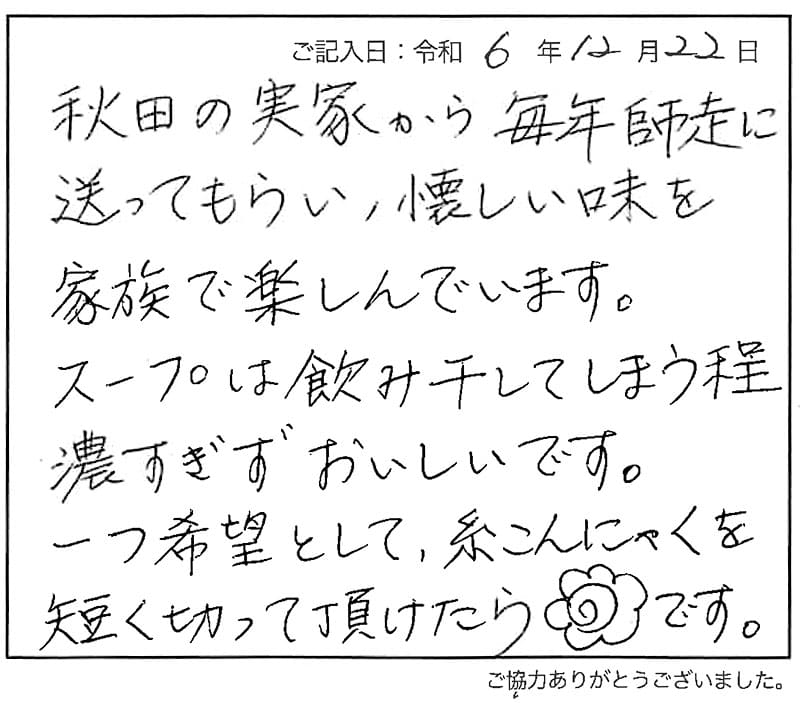 ご記入日：令和 6 年 12 月 22 日
秋田の実家から毎年師走に
送ってもらい、懐しい味を
家族で楽しんでいます。
スープは飲み干してしまう程
濃すぎず おいしいです。
一つ希望として、糸こんにゃくを
短く切って頂けたら です。
ご協力ありがとうございました。